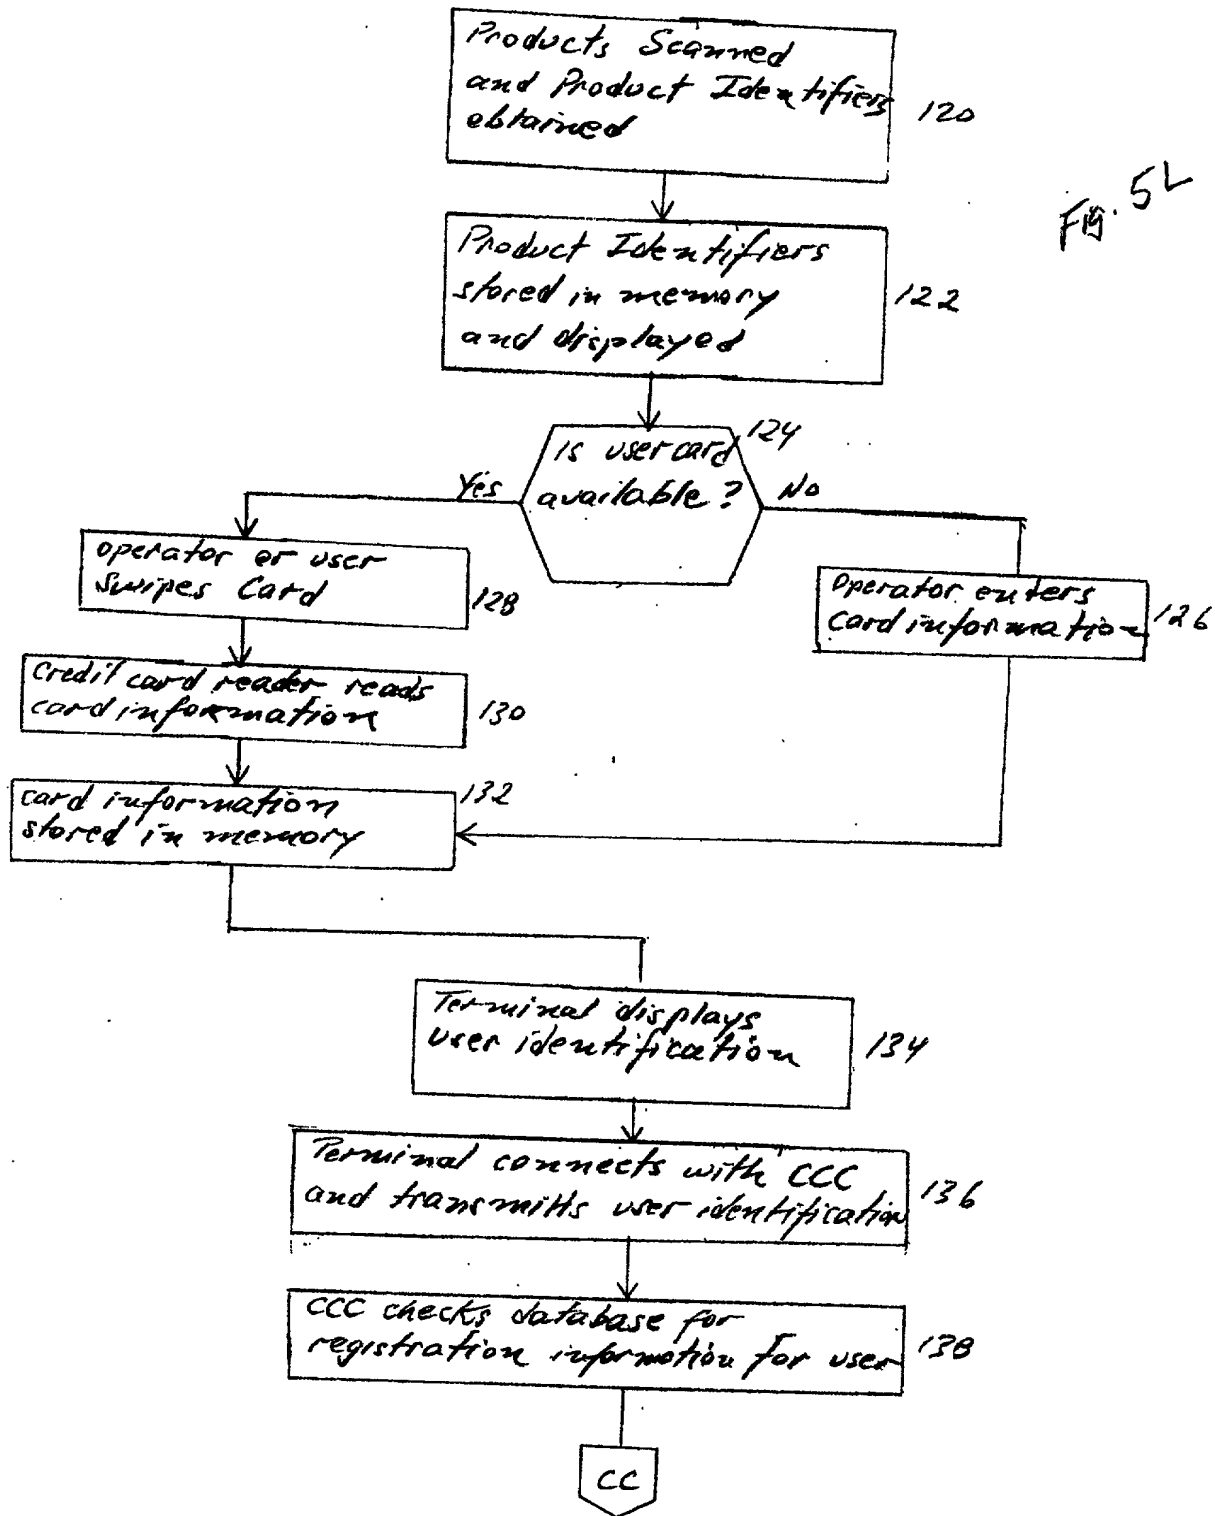 Products Scanned
and Product Identifiers
obtained
120
Fig. 5L
Product Identifiers
stored in memory
and displayed
122
Is user card
available?
124
Yes
No
operator or user
swipes Card
128
Operator enters
card information
126
Credit card reader reads
card information
130
card information
stored in memory
132
Terminal displays
user identification
134
Terminal connects with CCC
and transmitts user identification
136
CCC checks database for
registration information for user
138
CC